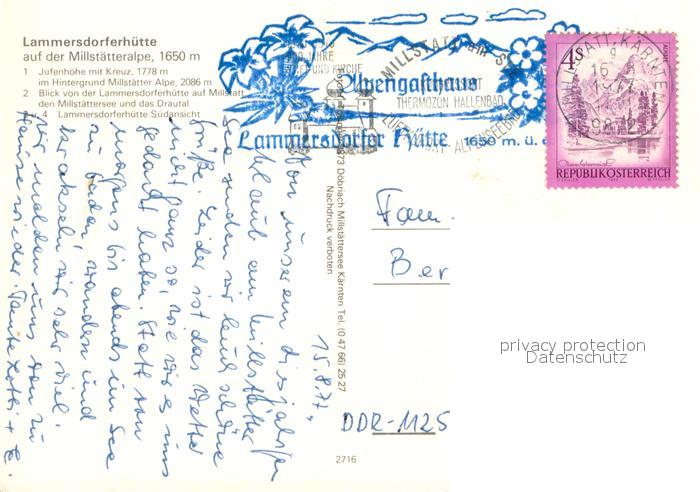 Lammersdorferhütte
auf der Millstätteralpe, 1650 m
1 Jufenhöhe mit Kreuz, 1778 m
im Hintergrund Millstätter Alpe, 2086 m
2 Blick von der Lammersdorferhütte auf Millstatt
den Millstättersee und das Drautal
4 Lammersdorferhütte Südansicht
Alpengasthaus
Lammersdorfer Hütte 1650 m. ü.
MILLSTATT am S
THERMOZON HALLENBAD
4S
REPUBLIK ÖSTERREICH
MILLSTATT-KÄRNTEN
16
1977
9872
9873 Döbriach Millstättersee Kärnten Tel. (0 47 66) 25 27
Nachdruck verboten
15.8.77
Von unserem diesjährigen
Urlaub am Millstätter
See senden wir Euch schöne
Grüße. Leider ist das Wetter
nicht ganz so, wie wir es uns
gedacht haben. Statt von
morgens bis abends im See
zu baden, wandern und
kraxeln wir sehr viel.
Wir melden uns von zu
Hause wieder. Tante Lotti +
Fam.
Ber
DDR-1125
2716
privacy protection
Datenschutz